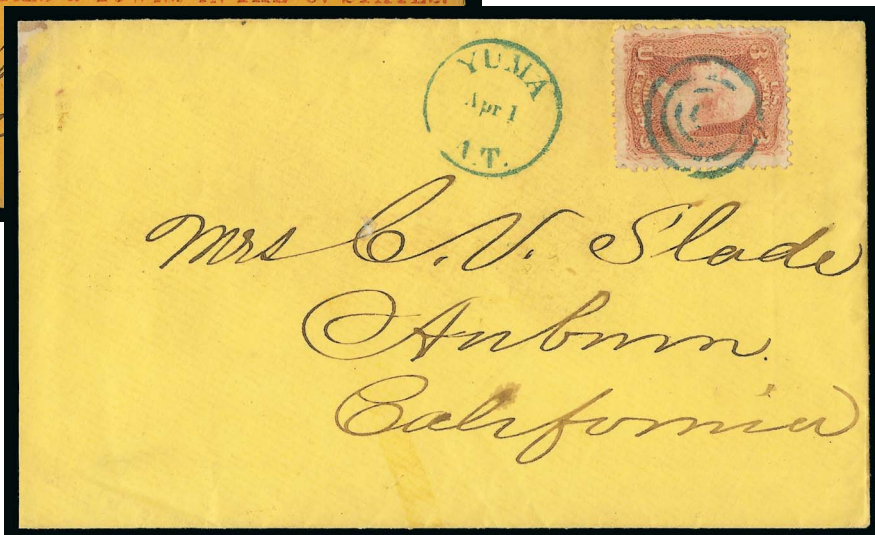 YUMA
Apr 1
A.T.
Mrs C. V. Slade
Auburn.
California